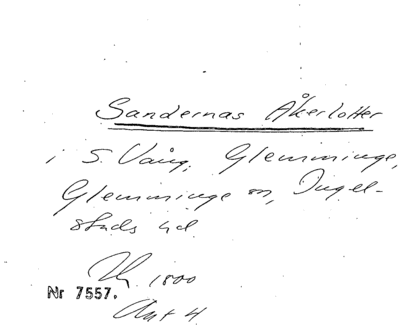 Sandernas Åkerlotter
i S. Vång, Glemminge,
Glemminge sn, Ingel-
stads hd
1800
Nr 7557.
Akt 4